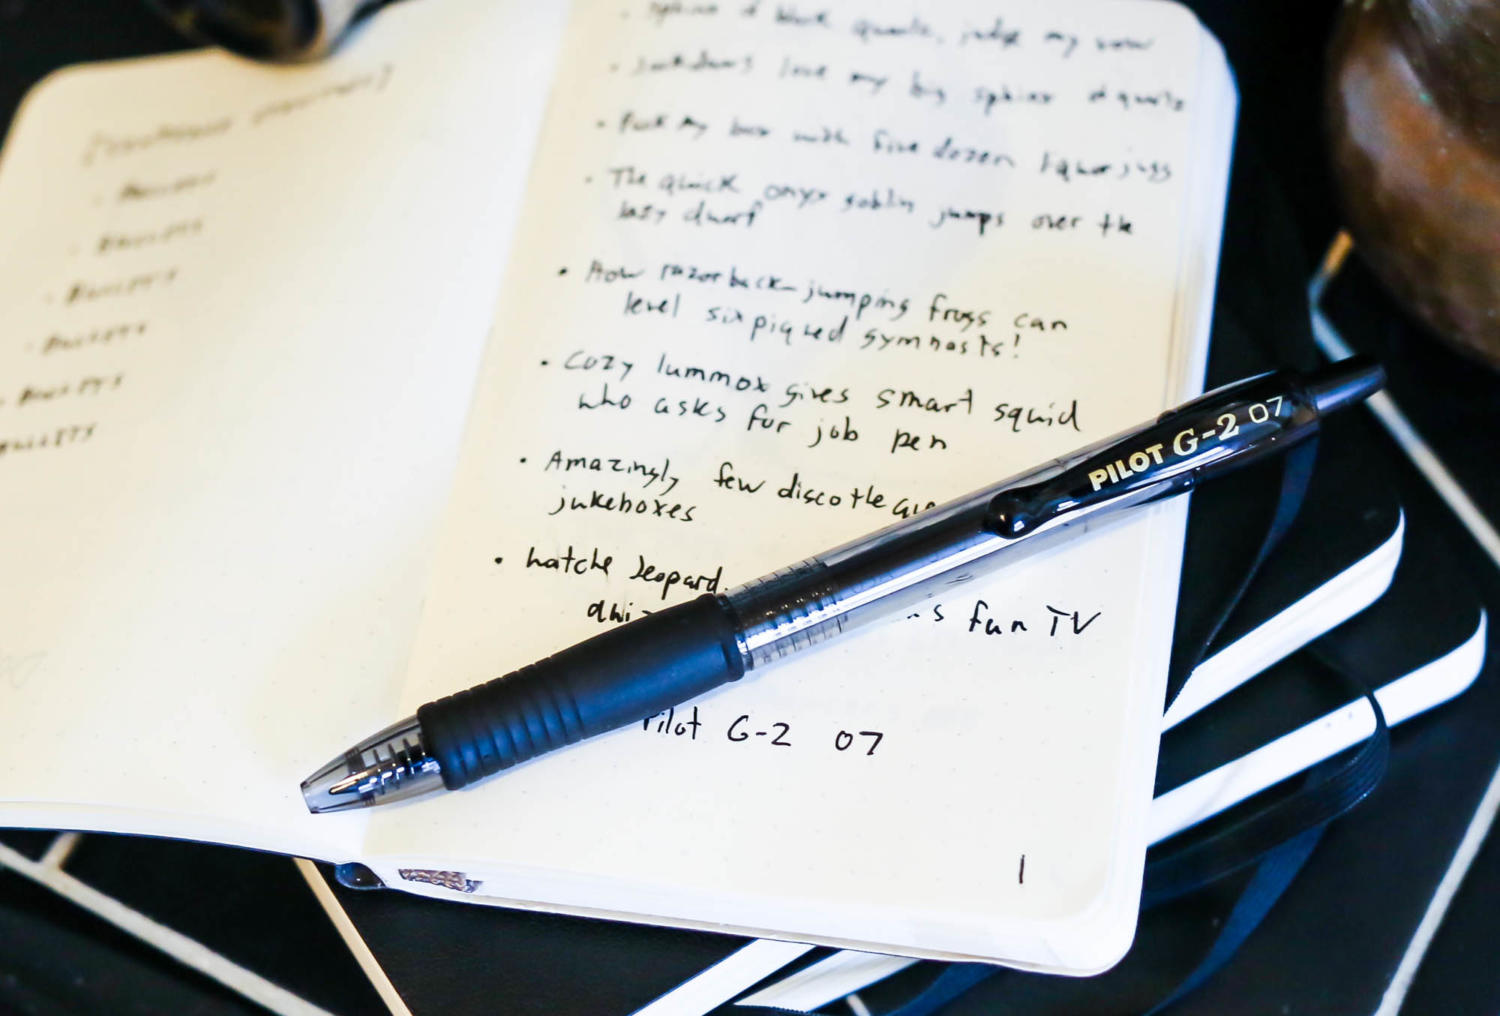 BULLETS
BULLETS
BULLETS
BULLETS
BULLETS
BULLETS
• Sphinx of black quartz, judge my vow
• Jackdaws love my big sphinx of quartz
• Pack my box with five dozen liquor jugs
• The quick onyx goblin jumps over the
lazy dwarf
• How razorback-jumping frogs can
level six piqued gymnasts!
• Cozy lummox gives smart squid
who asks for job pen
• Amazingly few discotheque
jukeboxes
• watch Jeopard
fun TV
Pilot G-2 07
1
PILOT G-2 07